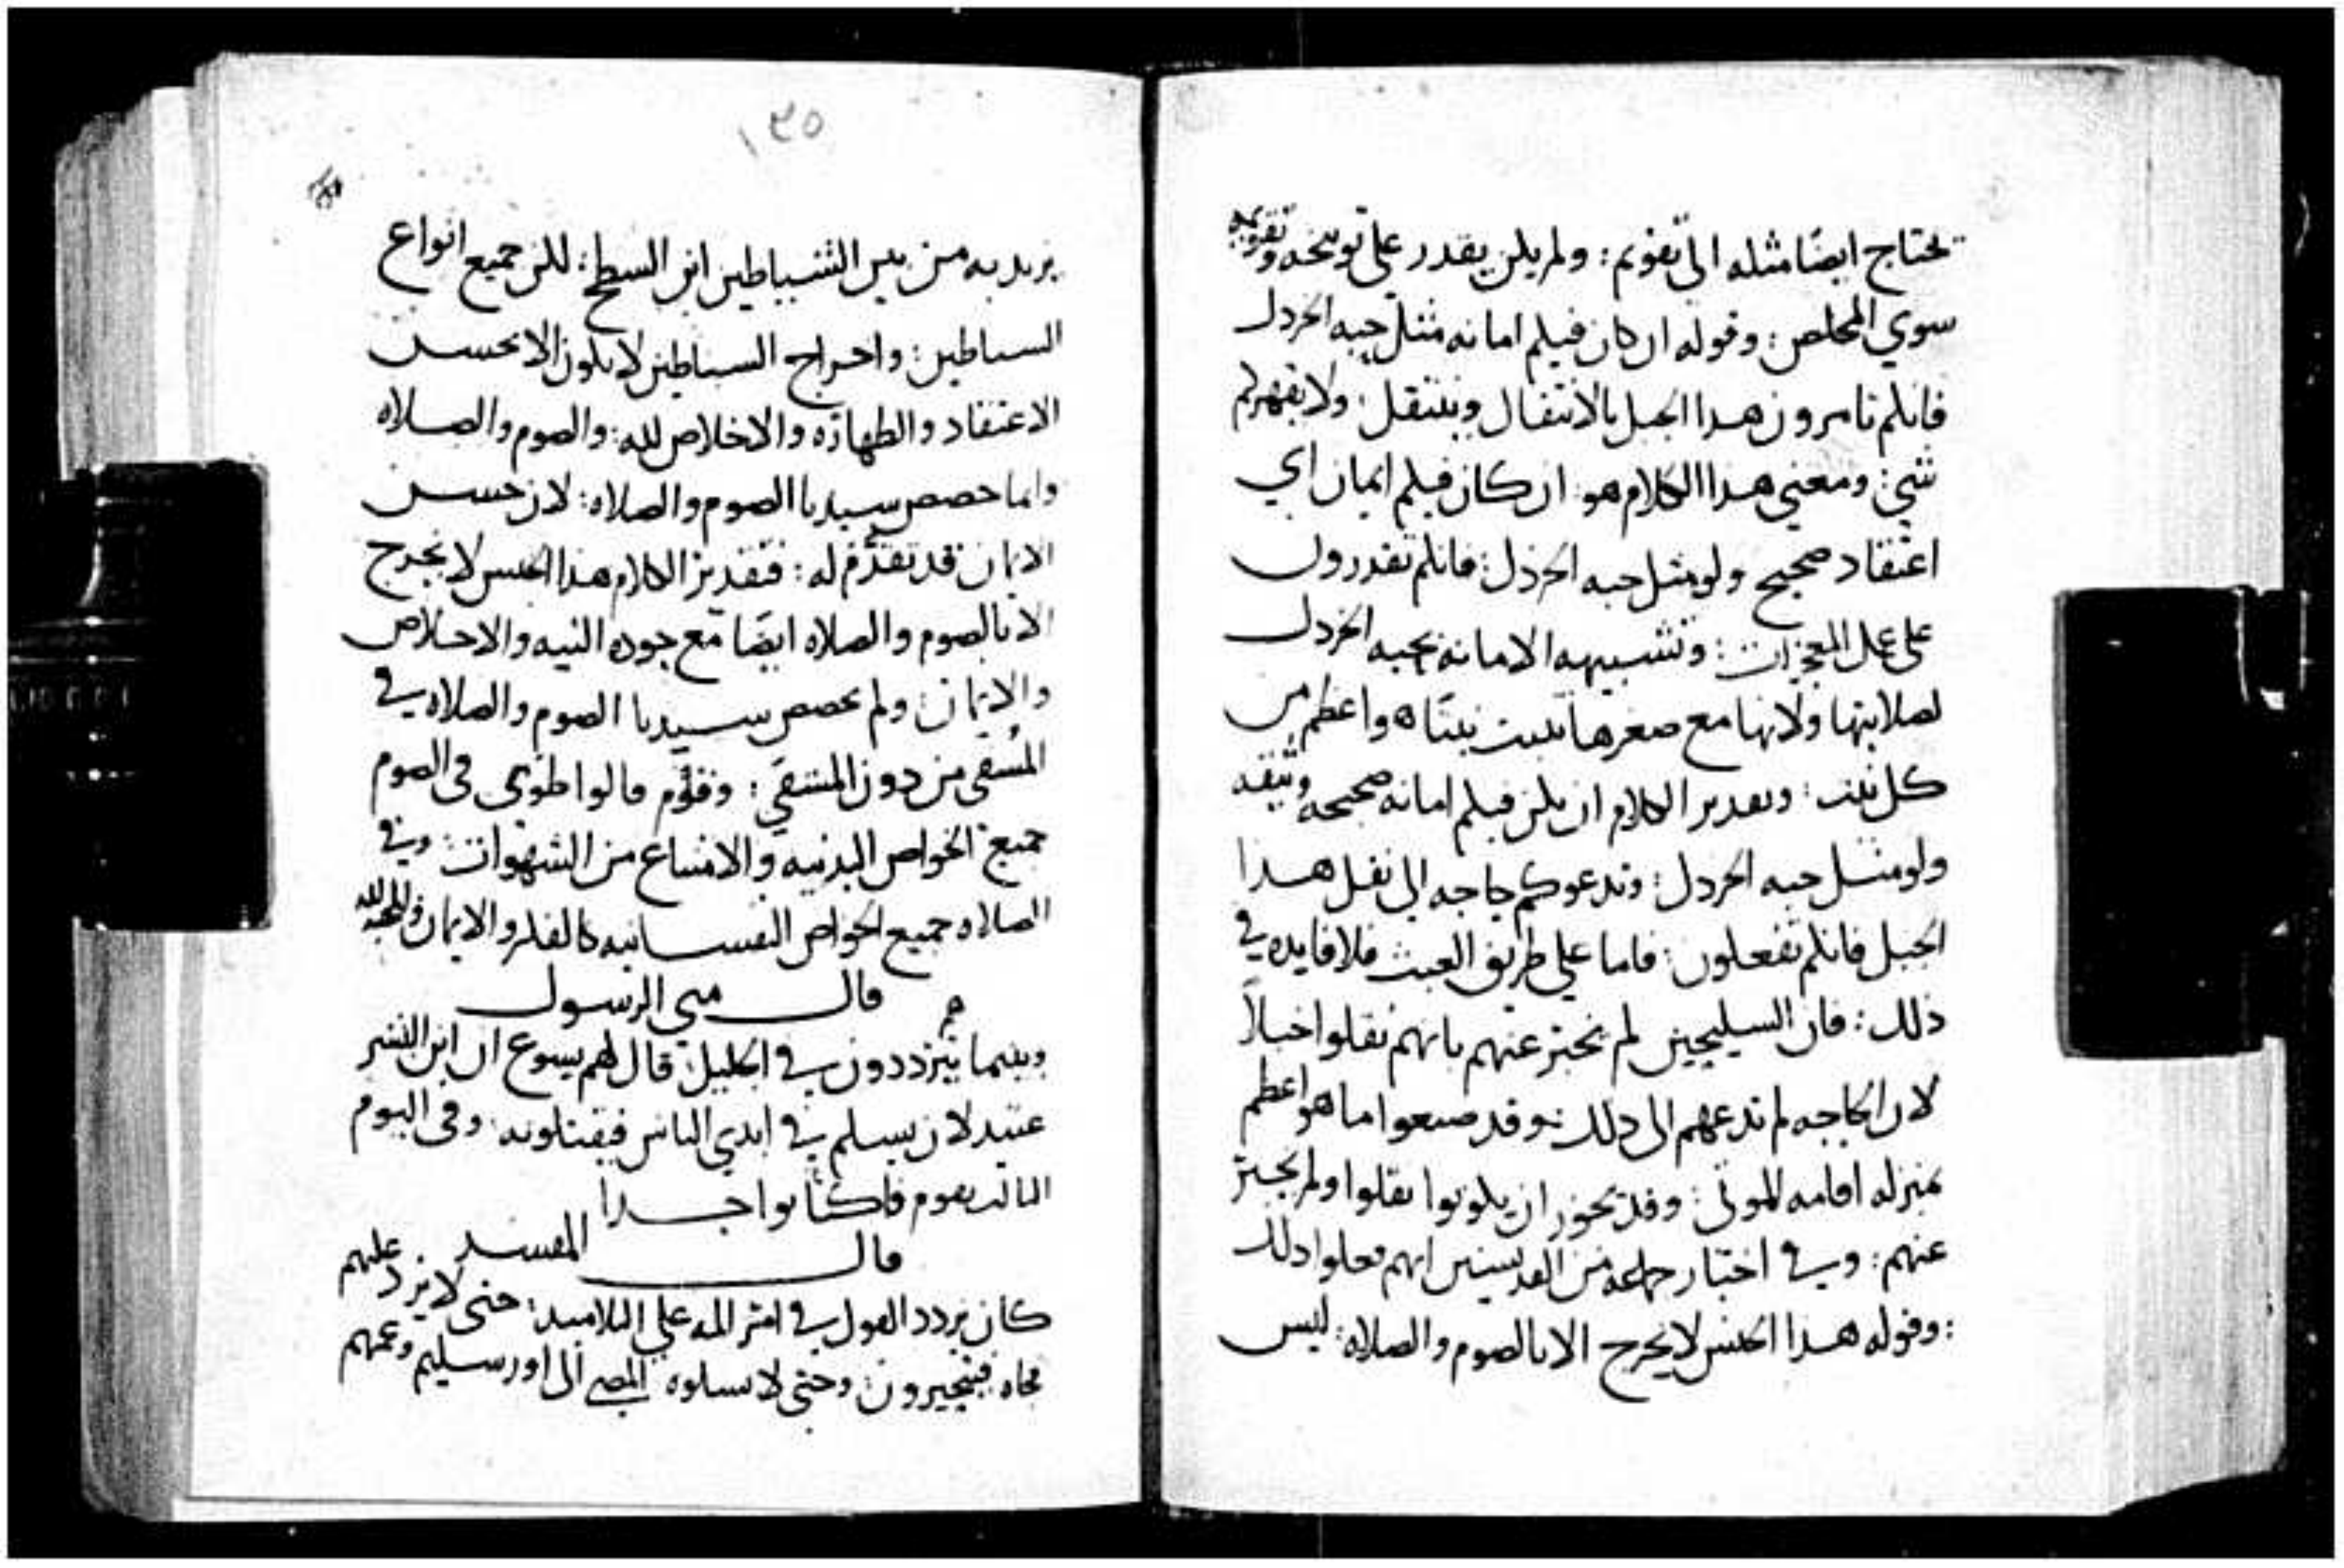 تحتاج ايضًا مثله الى تقويم: ولم يكن يقدر على توبيخه وتقويمه
سوي المخلص: وقوله ان كان فيكم امانه مثل حبه الخردل
فانكم تامرون هدا الجبل بالانتقال وينتقل: ولا يقهركم
شي: ومعني هدا الكلام هو: ان كان فيكم ايمان اي
اعتقاد صحيح ولو مثل حبه الخردل: فانكم تقدرون
على عمل المعجزات: وتشبيهه الامانه بحبه الخردل
لصلابتها ولانها مع صغرها تنبت نبتًا واعظم من
كل نبت: وتقدير الكلام ان يكن فيكم امانه صحيحه وثيقه
ولو مثل حبه الخردل: وتدعوكم حاجه الى نقل هدا
الجبل فانكم تفعلون: فاما علي طريق العبث فلا فايده في
ذلك: فان السليحين لم نخبر عنهم بانهم نقلوا اجبالاً
لان الحاجه لم تدعهم الى دلك: وقد صنعوا ما هو اعظم
بمنزله اقامه الموتى: وقد يجوز ان يكونوا نقلوا ولم يخبر
عنهم: وفي اخبار جماعه من القديسين انهم فعلوا دلك
: وقوله هدا الجنس لا يخرج الا بالصوم والصلاه: ليس
١٣٥
يريد به من بين الشياطين ابن السطح: لكن جميع انواع
الشياطين: واخراج الشياطين لا يكون الا بحسن
الاعتقاد والطهاره والاخلاص لله: والصوم والصلاه
وانما خصص سيدنا الصوم والصلاه: لان حسن
الايمان قد تقدم له: فتقدير الكلام هدا الجنس لا يخرج
الا بالصوم والصلاه ايضًا مع جوده النيه والاخلاص
والايمان: ولم يخصص سيدنا الصوم والصلاه في
المُشفى من دون المشفي: وقوم قالوا طوى في الصوم
جميع الخواص البدنيه والامتناع من الشهوات: وفي
الصلاه جميع الخواص النفسانيه كالفكر والايمان والمحبه لله
قال متى الرسول
وبينما يترددون في الجليل قال لهم يسوع ان ابن البشر
عتيد لان يسلم في ايدي الناس فيقتلونه: وفي اليوم
الثالث يقوم فاكتأبوا جدا
قال المفسر
كان يردد القول في امر المه على التلاميد: حتى لا يرد عليهم
فجاه فيتحيرون: وحتى لا يسلوه المضي الى اورسليم وعمهم